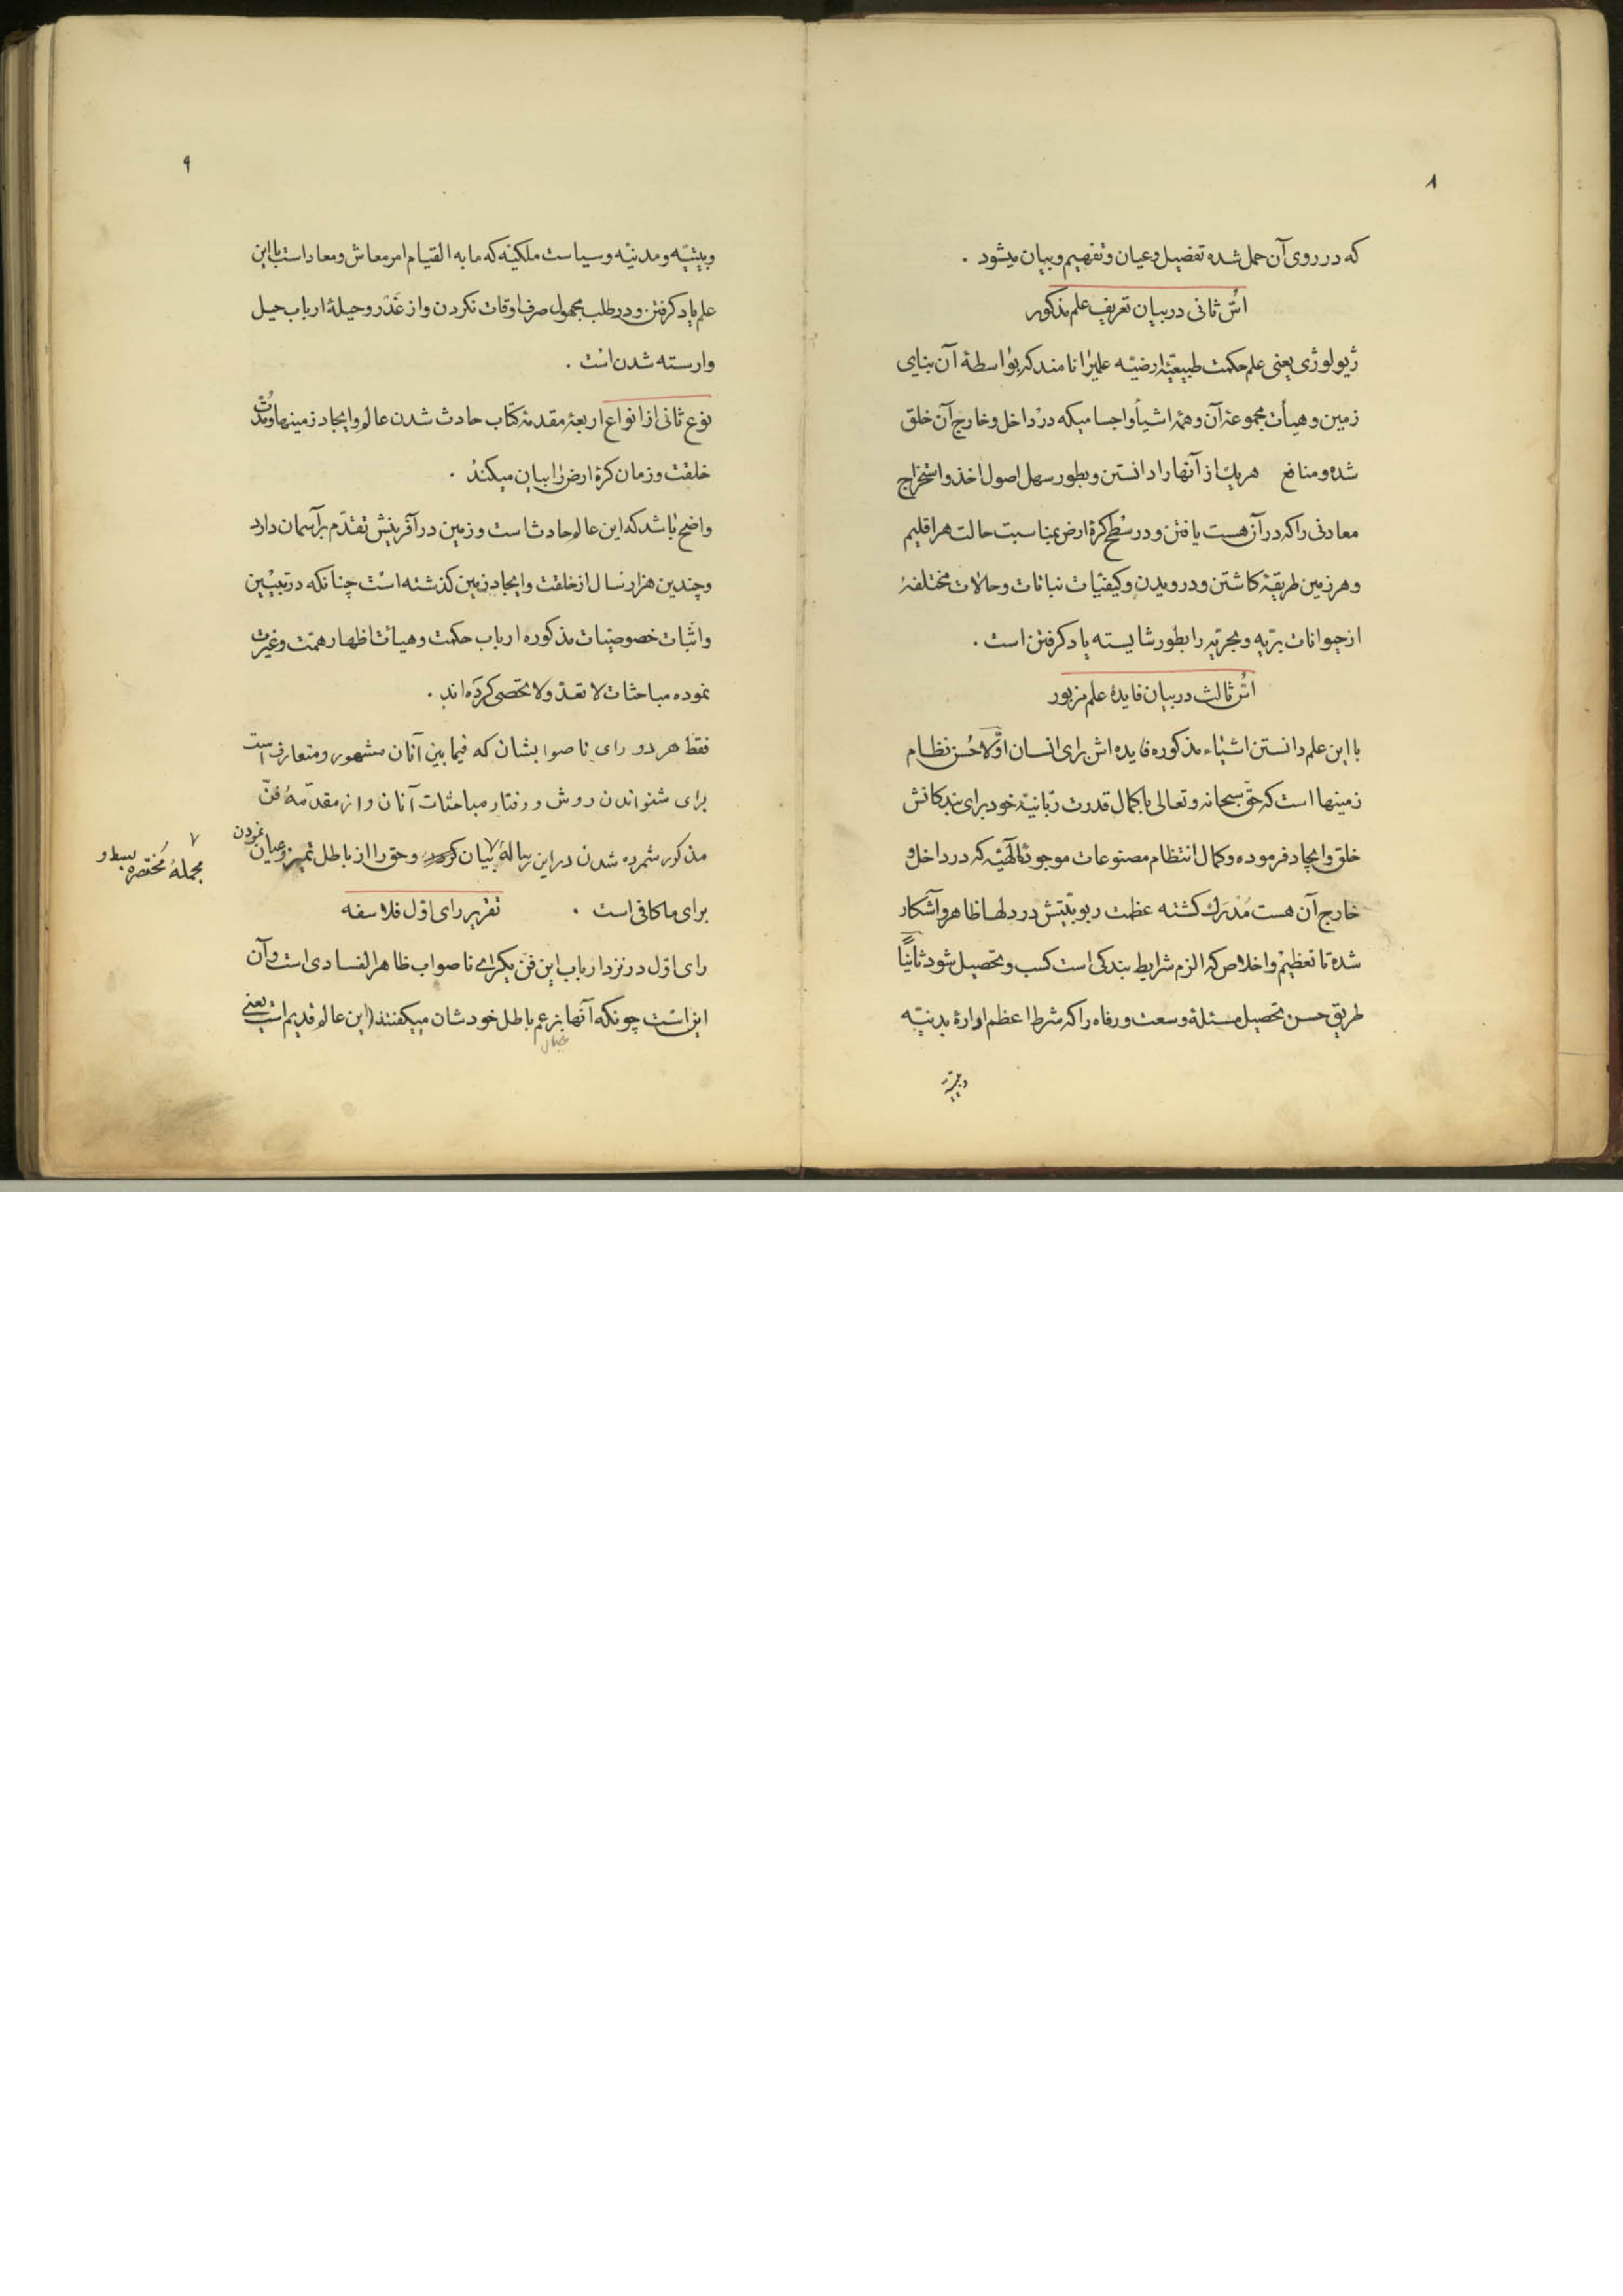 ٨
که در روی آن حمل شده تفصیل و عیان و تفهیم و بیان میشود .
اسّ ثانی در بیان تعریف علم مذکور
ژیولوژی یعنی علم حکمت طبیعیّهٔ ارضیّه علمیرا نامند که بواسطهٔ آن بنای
زمین و هیأت مجموعهٔ آن و همهٔ اشیأ و اجسامیکه در داخل و خارج آن خلق
شده و منافع هر یک از آنها را دانستن و بطور سهل اصول اخذ و استخراج
معادنی را که در آن هست یافتن و در سطح کرهٔ ارض بمناسبت حالت هر اقلیم
و هر زمین طریقهٔ کاشتن و درویدن و کیفیّات نباتات و حالات مختلفهٔ
از حیوانات برّیه و بحریّه را بطور شایسته یاد کرفتن است .
اسّ ثالث در بیان فایدهٔ علم مزبور
با این علم دانستن اشیاء مذکوره فایده اش برای انسان اوّلا حُسن نظام
زمینها است که حقّ سبحانه و تعالی با کمال قدرت ربّانیّهٔ خود برای بندکانش
خلق و ایجاد فرموده و کمال انتظام مصنوعات موجودهٔ الٓهیّه که در داخل و
خارج آن هست مُدْرَک کشته عظمت ربوبیّتش در دلها ظاهر و آشکار
شده تا تعظیم و اخلاص که الزم شرایط بندکی است کسب و تحصیل شود ثانیًا
طریق حسن تحصیل مسئلهٔ وسعت و رفاه را که شرط اعظم ادارهٔ بدنیّه
و بیتیّه
٩
و بیتیّه و مدنیّه و سیاست ملکیّه که ما به القیام امر معاش و معاد است با این
علم یاد کرفتن و در طلب مجهول صرف اوقات نکردن و از غَدْر و حیلهٔ ارباب حیل
وارسته شدن است .
نوع ثانی از انواع اربعهٔ مقدمهٔ کتاب حادث شدن عالم و ایجاد زمینها و مدّت
خلقت و زمان کرهٔ ارض را بیان میکند .
واضح باشد که این عالم حادث است و زمین در آفرینش تقدّم بر آسمان دارد
و چندین هزار سال از خلقت و ایجاد زمین کذشته است چنانکه در تبیین
و اثبات خصوصیّات مذکوره ارباب حکمت و هیأت اظهار همّت و غیرت
نموده مباحثات لا تعدّ و لا تحصی کرده اند .
فقط هر دو رای نا صوابشان که فیما بین آنان مشهور و متعارف است
برای شنواندن روش و رفتار مباحثات آنان و از مقدّمهٔ فنّ
مذکور شمرده شدن در این رساله ٧ بیان کردن و حق را از باطل تمیز و عیان نمودن
٧ مجملهٔ مُختصره بسط و
برای ما کافی است . تقریر رای اوّل فلاسفه
رای اوّل در نزد ارباب این فنّ یکرای نا صواب ظاهر الفسادی است و آن
این است چونکه آنها بزعم باطل خودشان میکفتند (این عالم قدیم است یعنی